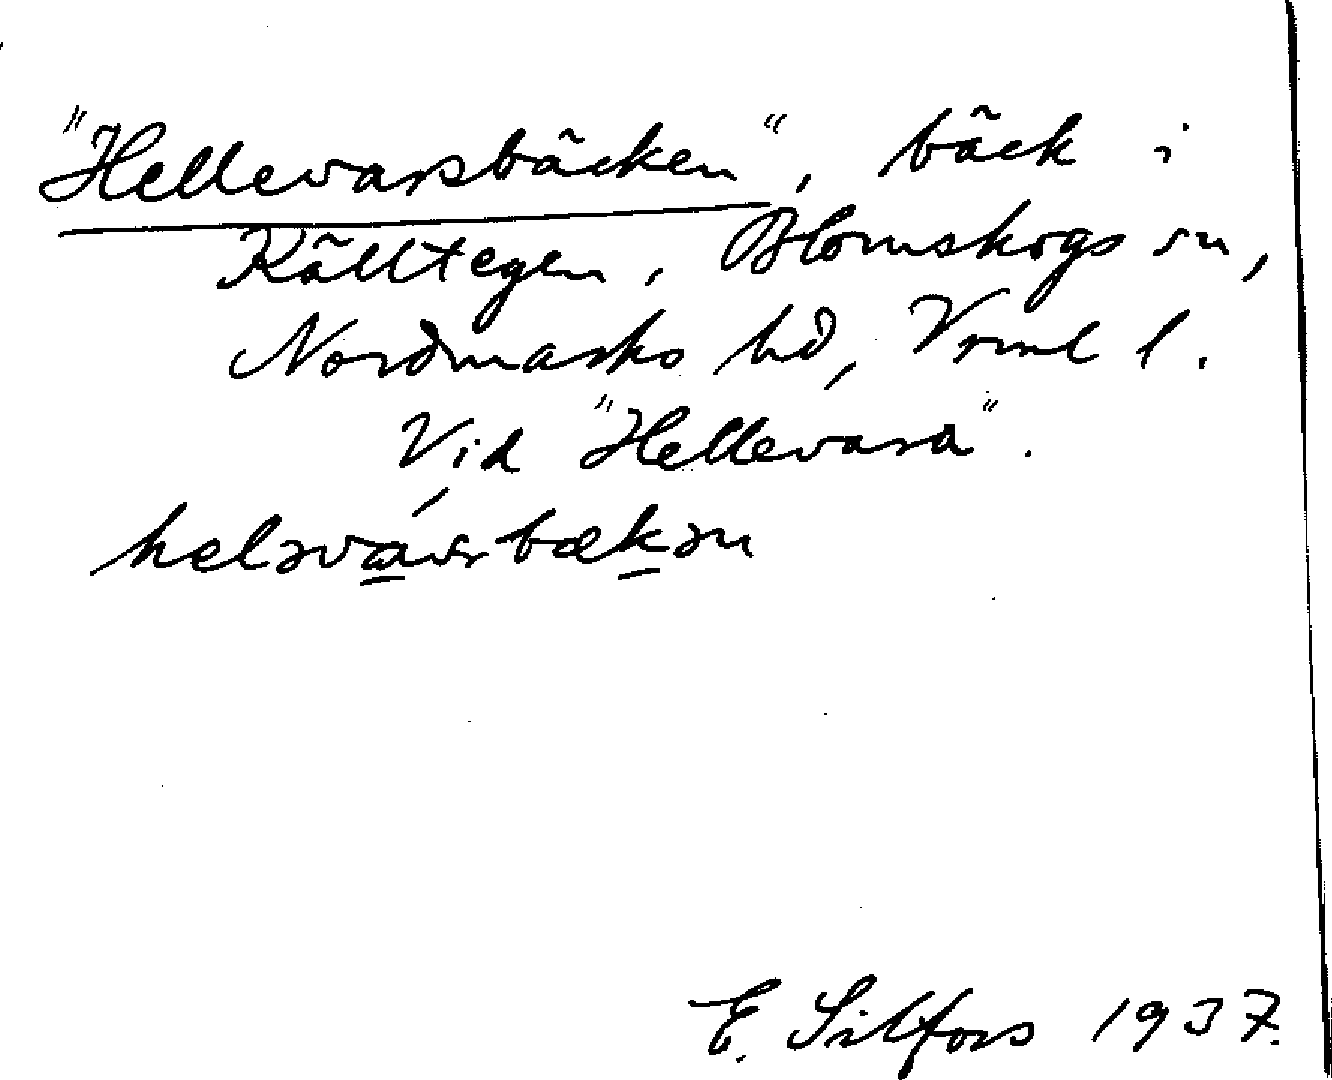 "Hellevarsbäcken", bäck i
Källtegen, Blomskogs sn,
Nordmarks hd, Vrml l.
Vid "Hellevara".
E. Silfors 1937.